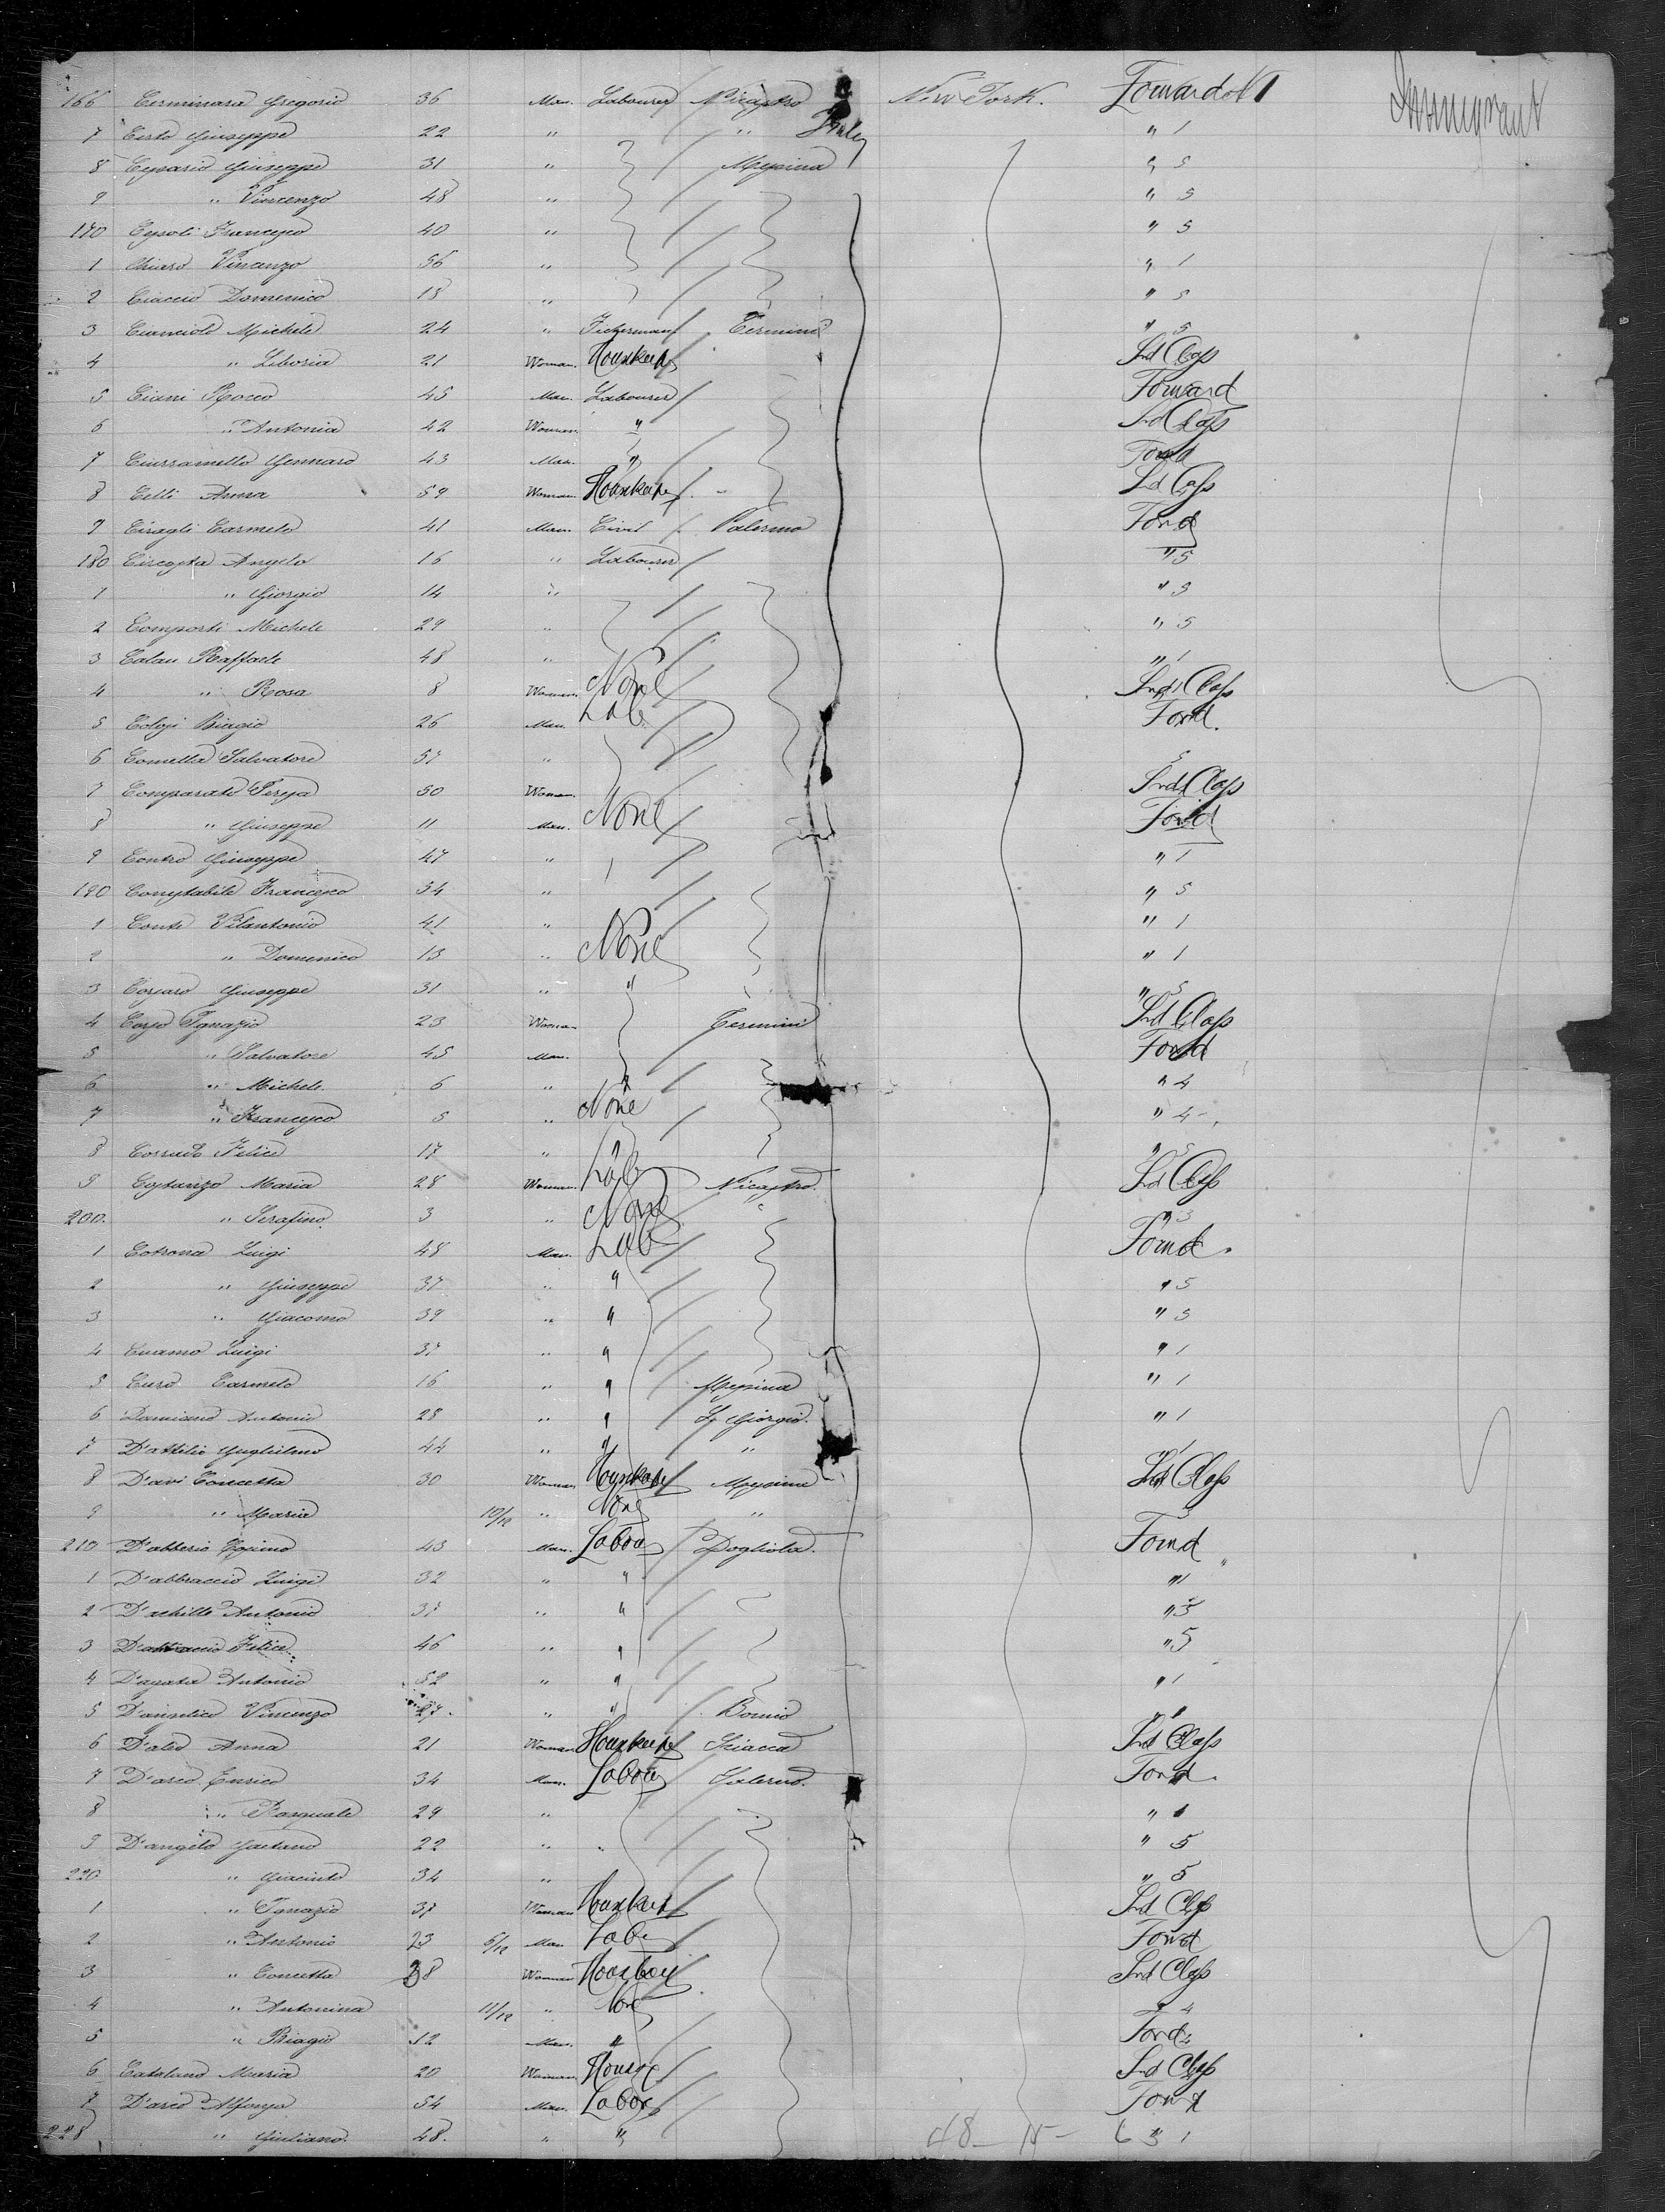 166 Cerminara Gregorio 36 Man. Labourer Nicastro New York. Forward 1 Immigrant
7 Certo Giuseppe 22 " " Italy " 1
8 Cesario Giuseppe 31 " Messina " 5
9 " Vincenzo 48 " " 5
170 Cesoli Francesco 40 " " 5
1 Chiaro Vincenzo 56 " " 1
2 Ciaccio Domenico 18 " " 5
3 Cianciolo Michele 24 " Fisherman Termini " 5
4 " Liboria 21 Woman. Housekeep 2nd Class
5 Ciani Rocco 45 Man. Labourer Forward
6 " Antonia 42 Woman. " 2nd Class
7 Gennaro 43 Man. " Forwd
8 Cilli Anna 59 Woman. Housekeep " 2nd Class
9 Carmelo 41 Man. Civil Palermo Forwd
180 Angelo 16 " Labourer " 5
1 " Giorgio 14 " " 5
2 Comporti Michele 29 " " 5
3 Calau Raffaele 48 " " 1
4 " Rosa 8 Woman. None 2nd Class
5 Biagio 26 Man. Lab Forwd.
6 Comella Salvatore 57 " 5
7 Comparato Teresa 50 Woman. 2nd Class
8 " Giuseppe 11 Man. None Forwd
9 Contro Giuseppe 47 " " 1
190 Constabile Francesco 34 " " 5
1 Conte Vitantonio 41 " " 1
2 " Domenico 13 " None " 1
3 Corsaro Giuseppe 31 " " " 5
4 Corso Ignazio 23 Woman Termini 2nd Class
5 " Salvatore 45 Man. Forwd
6 " Michele. 6 " " " 4
7 " Francesco 5 " None " 4
8 Corrado Felice 17 " " " 5
9 Costanzo Maria 28 Woman. Lab Nicastro. 2nd Class
200. " Serafino 3 " None " " 3
1 Cotrona Luigi 48 Man. Lab Forwd.
2 " Giuseppe 37 " " " 5
3 " Giacomo 39 " " " 5
4 Cuamo Luigi 37 " " " 1
5 Curo Carmelo 16 " " Messina " 1
6 Damiano Antonio 28 " " S. Giorgio. " 1
7 D'attilio Guglielmo 44 " " " " 1
8 D'avi Concetta 30 Woman Housekeep Messina 2nd Class
9 " Maria 10/12 " None "
210 D'abberio 43 Man. Labou Dogliola. Forwd
1 D'abbraccio Luigi 32 " " " 1
2 D'achille Antonio 37 " " " 5
3 D'abbraccio Felice 46 " " " 5
4 D'agata Antonio 52 " " " 1
5 D'angelico Vincenzo 27. " " " 1
6 D'aleo Anna 21 Woman Housekeep Sciacca 2nd Class
7 D'arco Enrico 34 Man. Labou Salerno. Forwd.
8 " Pasquale 29 " " 1
9 D'angelo Gaetano 22 " " " 5
220 " Giacinto 34 " " 5
1 " Ignazio 37 Woman Housekeep 2nd Class
2 " Antonio 23 6/12 Man Lab Forwd
3 " Concetta 38 Woman 2nd Class
4 " Antonina 11/12 " None " 4
5 " Biagio 12 Man. " Forwd
6 Catalano Maria 20 Woman House 2nd Class
7 D'arco Alfonso 54 Man. Labor Forwd
228 " Giuliano. 48. " " 48 - 15 - 63 1